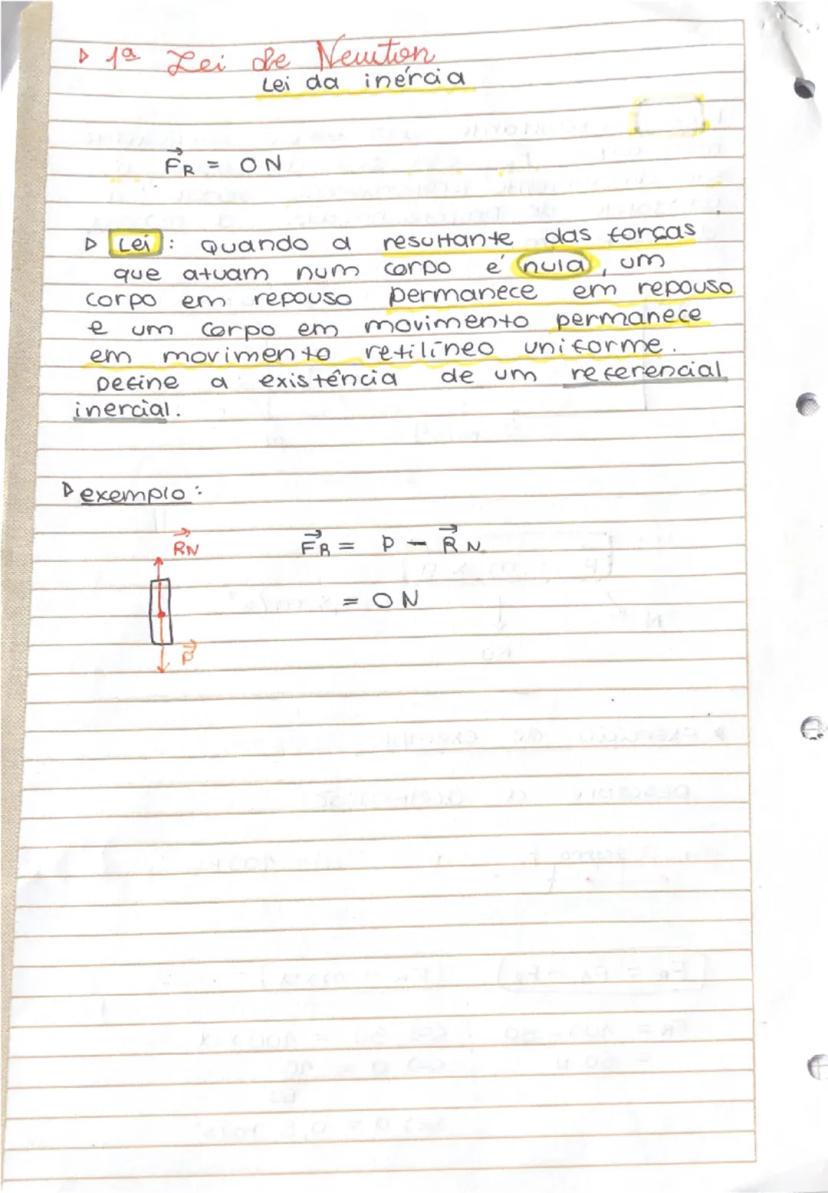 ▷ 1ª Lei de Newton
Lei da inércia
F⃗R = 0 N
▷ Lei : Quando a resultante das forças
que atuam num corpo é nula, um
corpo em repouso permanece em repouso
e um corpo em movimento permanece
em movimento retilíneo uniforme.
Define a existência de um referencial
inercial.
▷ exemplo:
R⃗N
F⃗R = P - R⃗N
= 0 N
P⃗